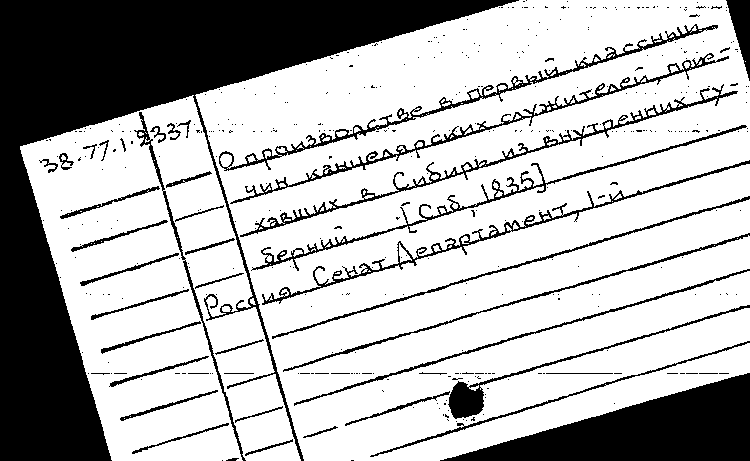 38.77.1.2337. О производстве в первый классный
чин канцелярских служителей, прие-
хавших в Сибирь из внутренних гу-
берний [Спб, 1835]
Россия. Сенат. Департамент, 1-й.